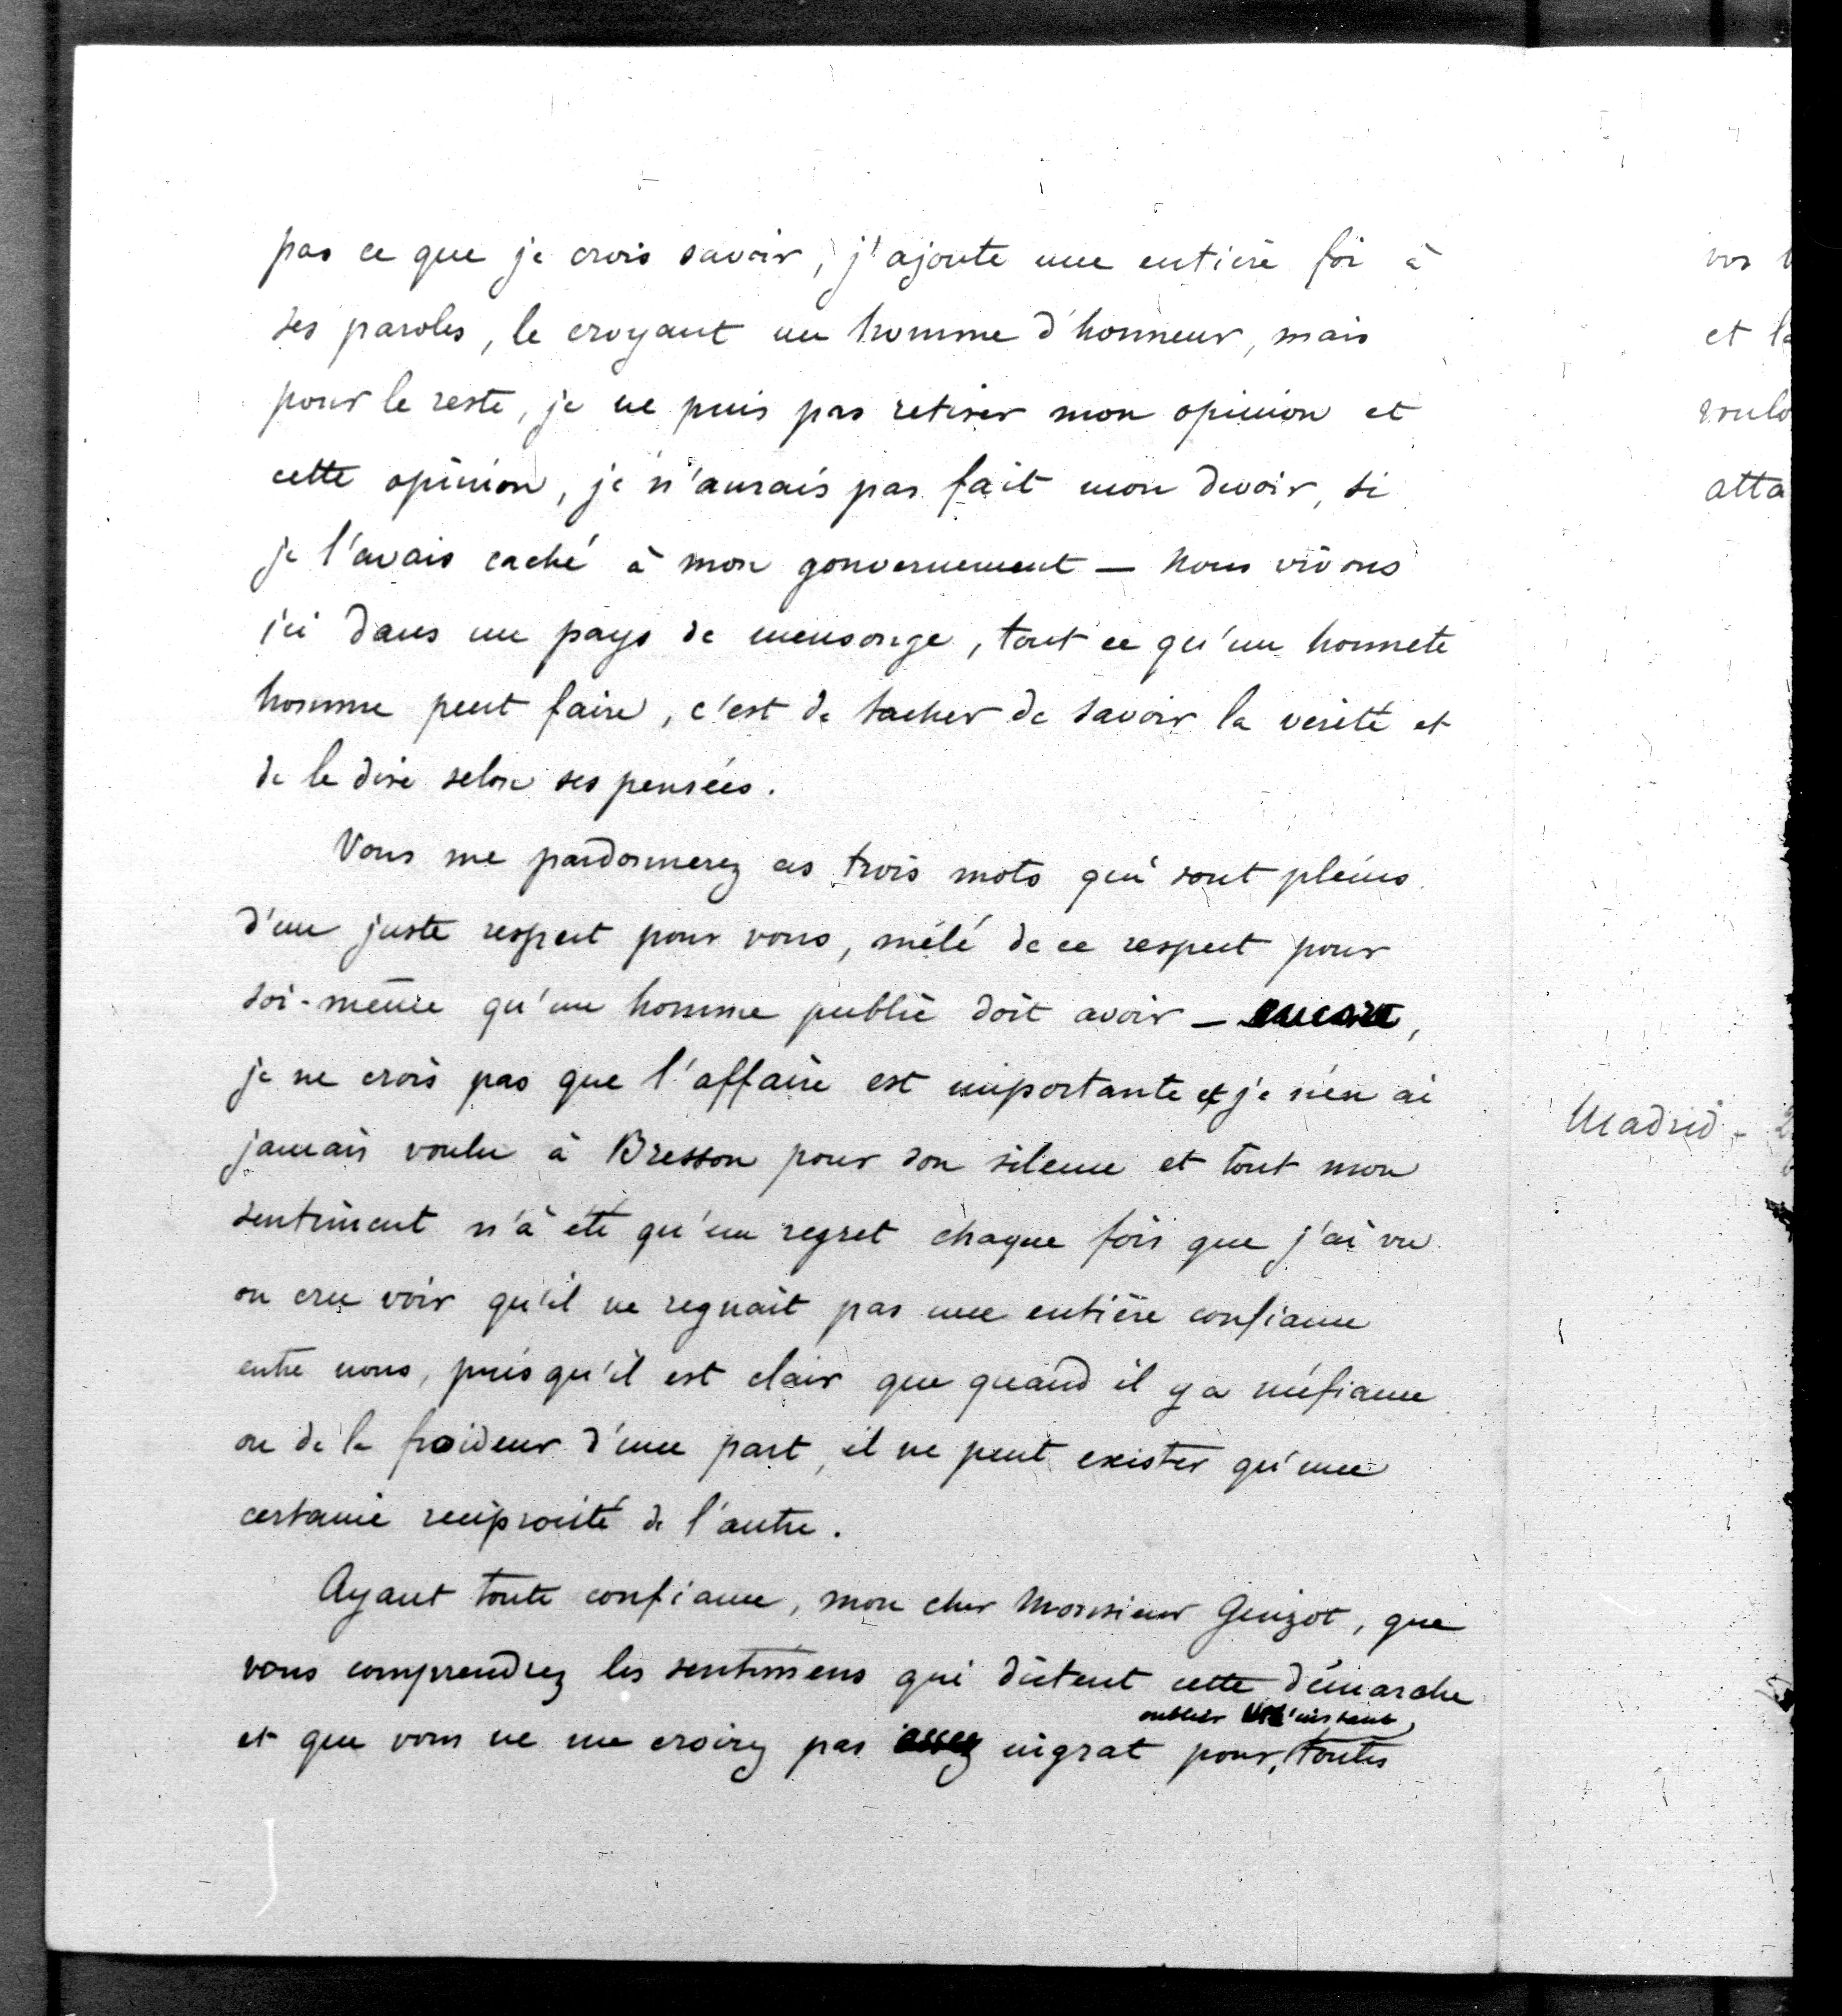 pas ce que je crois savoir, j'ajoute une entière foi à
ses paroles, le croyant un homme d'honneur, mais
pour le reste, je ne puis pas retirer mon opinion et
cette opinion, je n'aurais pas fait mon devoir, si
je l'avais caché à mon gouvernement — Nous vivons
ici dans un pays de mensonge, tout ce qu'un honnete
homme peut faire, c'est de tacher de savoir la verité et
de le dire selon ses pensées.
Vous me pardonnerez ces trois mots qui sont pleins
d'un juste respect pour vous, mélé de ce respect pour
soi-même qu'un homme public doit avoir — encore,
je ne crois pas que l'affaire est importante et je n'en ai
jamais voulu à Bresson pour son silence et tout mon
sentiment n'à été qu'un regret chaque fois que j'ai vu
ou cru voir qu'il ne regnait pas une entière confiance
entre nous, puisqu'il est clair que quand il y a méfiance
ou de la froideur d'une part, il ne peut exister qu'une
certaine reciprocité de l'autre.
Ayant toute confiance, mon cher Monsieur Guizot, que
vous comprendrez les sentimens qui dictent cette démarche
oublier l'instant
et que vous ne me croirez pas assez ingrat pour, toutes
vos
et la
voulo
atta
Madrid - 2